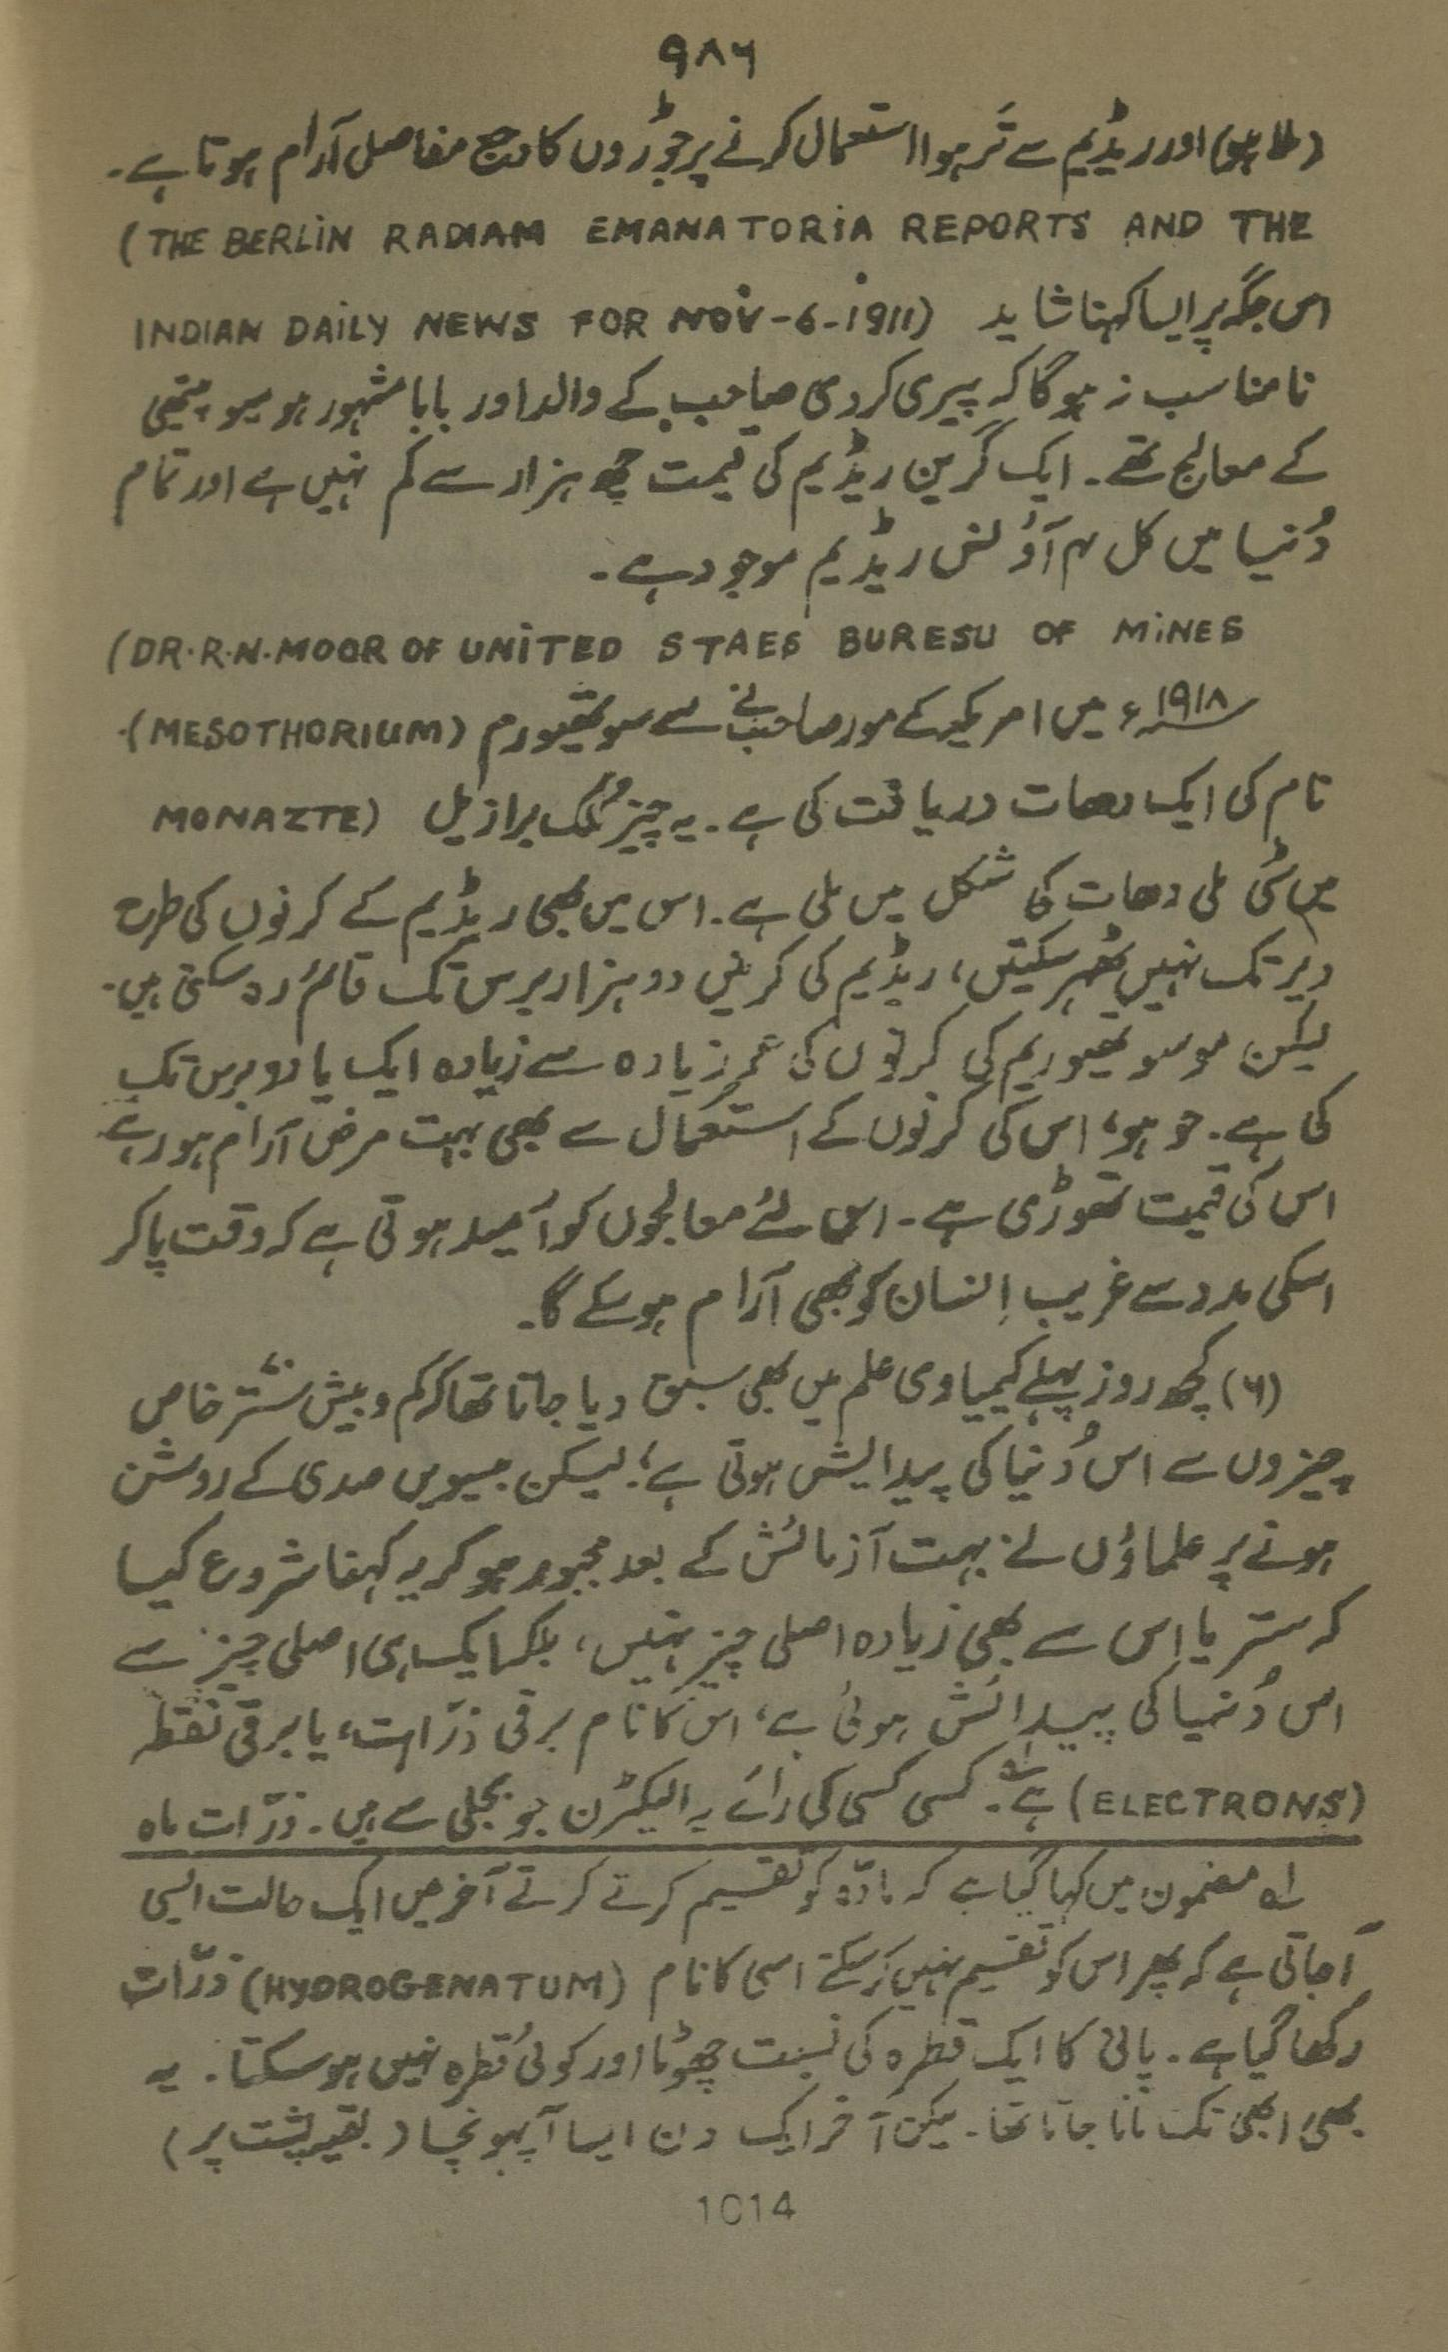 ۹۸۶
(ملا ہوا) اور ریڈیم سے تَر ہوا استعمال کرنے پر جوڑوں کا وجع مفاصل آرام ہوتا ہے۔
(THE BERLIN RADIAM EMANATORIA REPORTS AND THE
INDIAN DAILY NEWS FOR NOV-6-1911) اس جگہ پر ایسا کہنا شاید
نامناسب نہ ہوگا کہ پیری کردی صاحب کے والد اور بابا مشہور ہومیوپیتھی
کے معالج تھے۔ ایک گرین ریڈیم کی قیمت چھ ہزار سے کم نہیں ہے اور تمام
دُنیا میں کل ۴ آؤنس ریڈیم موجود ہے۔
(DR.R.N.MOOR OF UNITED STAES BURESU OF MINES
۱۹۱۸ء میں امریکہ کے مور صاحب نے سے سوتھیورم (MESOTHORIUM)
نام کی ایک دھات دریافت کی ہے۔ یہ چیز مُلک برازیل (MONAZTE
میں مٹی ملی دھات کی شکل میں ملی ہے۔ اس میں بھی ریڈیم کے کرنوں کی طرح
دیر تک نہیں ٹھہر سکیتں، ریڈیم کی کرنیں دو ہزار برس تک قائم رہ سکتی ہیں۔
لیکن موسوتھیوریم کی کرنوں کی عمر زیادہ سے زیادہ ایک یا دو برس تک
کی ہے۔ جو ہو، اس کی کرنوں کے استعمال سے بھی بہت مرض آرام ہو رہے
اس کی قیمت تھوڑی ہے۔ اس لئے معالجوں کو اُمید ہوتی ہے کہ وقت پاکر
اسکی مدد سے غریب اِنسان کو بھی آرام ہوسکے گا۔
(۶) کچھ روز پہلے کیمیاوی علم میں بھی سبق دیا جاتا تھا کہ کم و بیش ستّر خاص
چیزوں سے اس دُنیا کی پیدایش ہوتی ہے؛ لیکن بیسویں صدی کے روشن
ہونے پر علماؤں نے بہت آزمائش کے بعد مجبور ہوکر یہ کہنا شروع کیا
کہ ستر یا اس سے بھی زیادہ اصلی چیز نہیں، بلکہ ایک ہی اصلی چیز سے
اس دُنیا کی پیدائش ہوئی ہے، اس کا نام برقی ذرّات، یا برقی نقطہ
(ELECTRONS) ہے۔ لہ کسی کسی کی رائے یہ الیکٹرن جو بجلی سے ہیں۔ ذرّات مادہ
لہ مضمون میں کہا گیا ہے کہ مادّہ کو تقسیم کرتے کرتے آخر میں ایک حالت ایسی
آجاتی ہے کہ پھر اس کو تقسیم نہیں کرسکتے اسی کا نام (HYDROGENATUM) ذرّات
رکھا گیا ہے۔ پانی کا ایک قطرہ کی نسبت چھوٹا اور کوئی قطرہ نہیں ہوسکتا۔ یہ
بھی ابھی تک مانا جاتا تھا۔ لیکن آخر ایک دن ایسا آپہونچا (بقیہ پشت پر)
1014